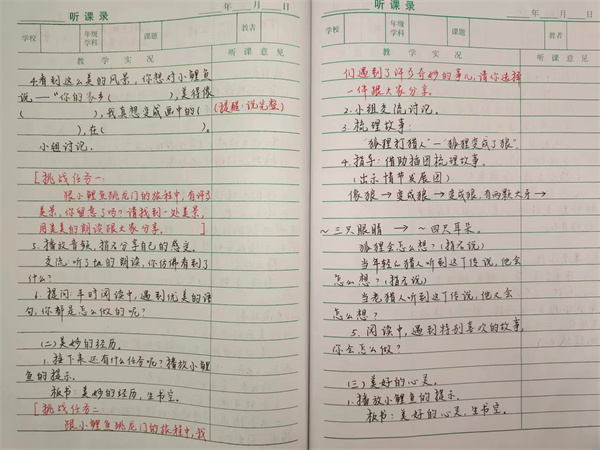 听课录
年 月 日
学校 年级学科 课题 教者
教学实况 听课意见
4.看到这么美的风景，你想对小鲤鱼
说——“你的家乡( )，美得像
( )，我真想变成画中的( (提醒:说完整)
)，在( )。
小组讨论。
[挑战任务一:
跟小鲤鱼跳龙门的旅程中，有许多
美景，你留意了吗？请找到一处美景，
用美美的朗读跟大家分享。 ]
5.播放音频，指名分享自己的感受。
交流:听了她的朗读，你仿佛看到了
什么？
6.提问:平时阅读中，遇到优美的语
句，你都是怎么做的呢？
(二)美妙的经历。
1.接下来还有什么任务呢？播放小鲤
鱼的提示。
板书:美妙的经历，生书空。
[挑战任务二:
跟小鲤鱼跳龙门的旅程中，我
听课录
年 月 日
学校 年级学科 课题 教者
教学实况 听课意见
们遇到了许多奇妙的事儿，请你选择
一件跟大家分享。
2.小组交流讨论。
3.梳理故事:
“狐狸打猎人”—“狐狸变成了狼”
4.指导:借助插图梳理故事。
(出示情节发展图)
像狼→变成狼→变成狼，有两颗大牙→
～三只眼睛→～四只耳朵。
狐狸会怎么想？(指名说)
当年轻人猎人听到这个传说，他会
怎么想？(指名说)
当老猎人听到这个传说，他又会
怎么想？
5.阅读中，遇到特别喜欢的故事，
你会怎么做？
(三)美好的心灵。
1.播放小鲤鱼的提示。
板书:美好的心灵，生书空。